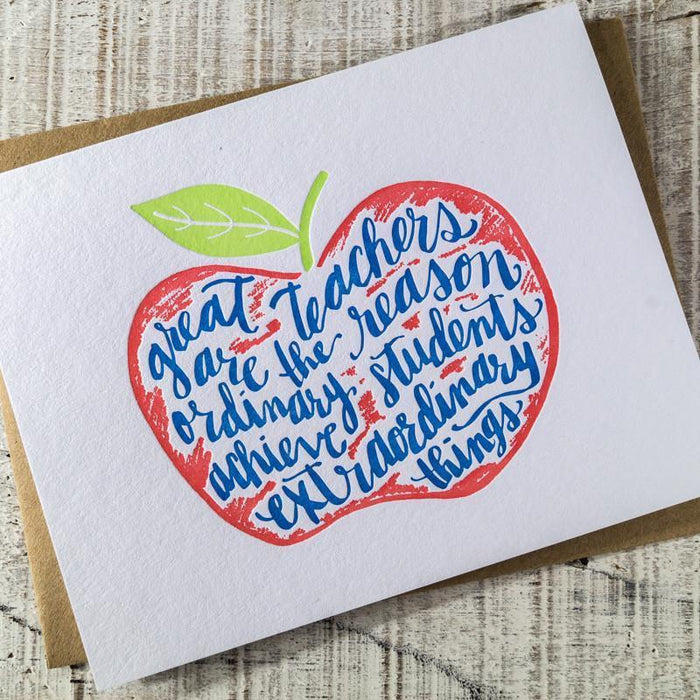 great teachers
are the reason
ordinary students
achieve extraordinary
things